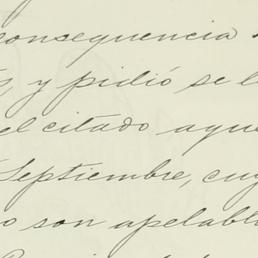 consequencia
, y pidió se l
el citado aque
Septiembre, cuy
o son apelabl